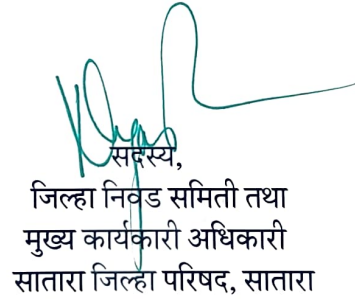 सदस्य,
जिल्हा निवड समिती तथा
मुख्य कार्यकारी अधिकारी
सातारा जिल्हा परिषद, सातारा